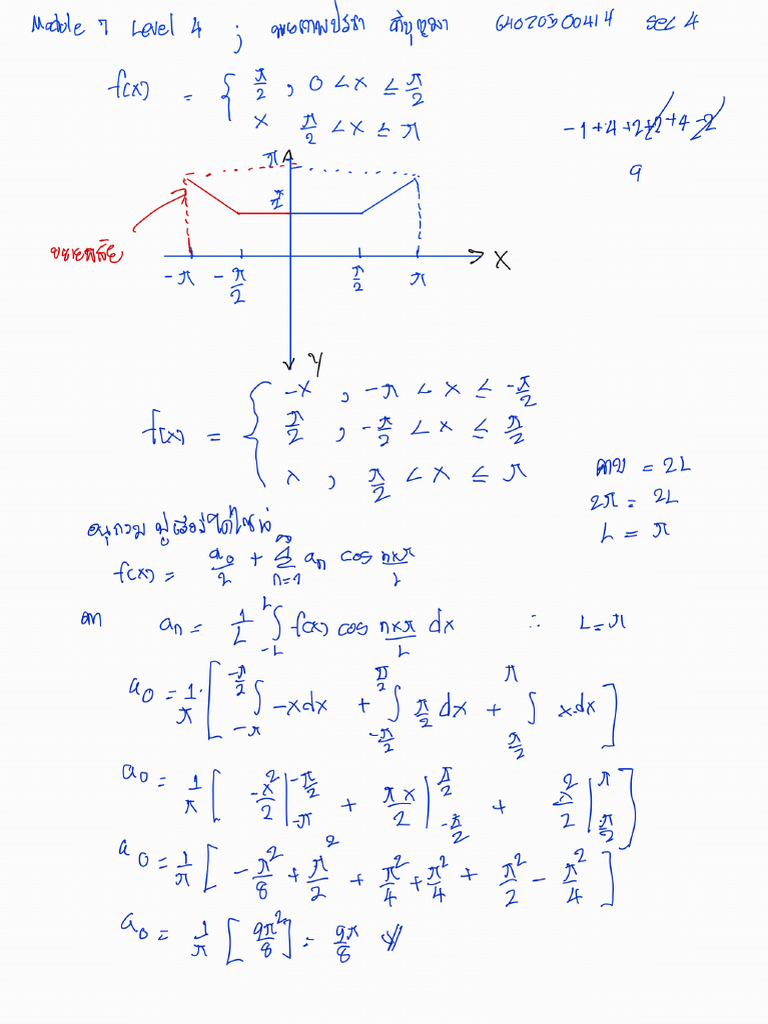 Module 7 Level 4 ; 64020500414 sec 4
f(x) = { π/2 , 0 < x ≤ π/2
x π/2 < x ≤ π
-1+4+2+2+4-2
9
π
π/2
-π -π/2 π/2 π X
y
f(x) = { -x , -π < x ≤ -π/2
π/2 , -π/2 < x ≤ π/2
x , π/2 < x ≤ π
คาบ = 2L
2π = 2L
L = π
อนุกรม ฟูเรียร์
f(x) = a₀/2 + Σ_{n=1}^{∞} aₙ cos nxπ/L
จาก aₙ = 1/L ∫_{-L}^{L} f(x) cos nxπ/L dx ∴ L = π
a₀ = 1/π · [ ∫_{-π}^{-π/2} -x dx + ∫_{-π/2}^{π/2} π/2 dx + ∫_{π/2}^{π} x·dx ]
a₀ = 1/π [ -x²/2 |_{-π}^{-π/2} + πx/2 |_{-π/2}^{π/2} + x²/2 |_{π/2}^{π} ]
a₀ = 1/π [ -π²/8 + π²/2 + π²/4 + π²/4 + π²/2 - π²/4 ]
a₀ = 1/π [ 9π²/8 ] = 9π/8